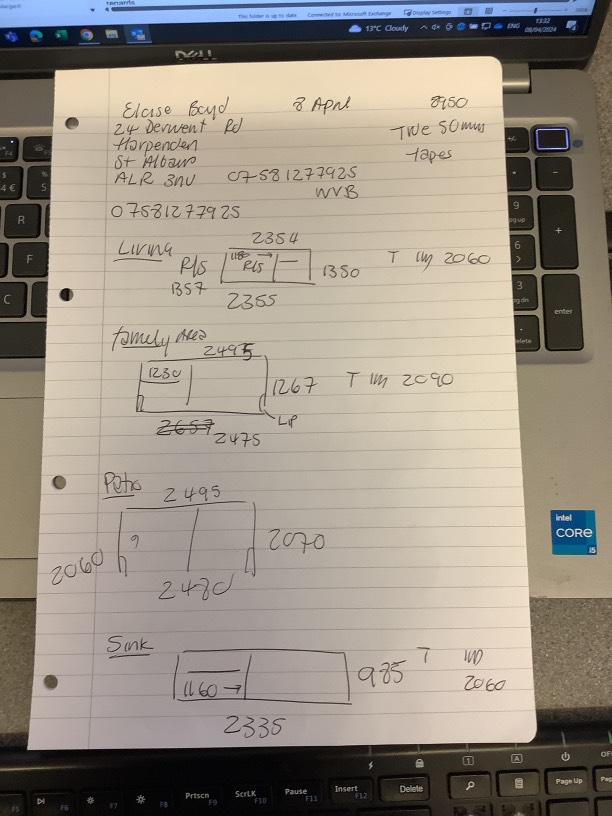 This folder is up to date    Connected to: Microsoft Exchange    Display Settings
13°C Cloudy    ENG    13:32
08/04/2024
DELL
Elcise Boyd    8 April    8950
24 Derwent Rd    TWE 50mm
Harpenden    tapes
St Albans
ALR 3NU    07581277925
WVB
07581277925
Living    2354
R/s    1180    R/s    1350    T    2060
1357
2355
Family Area
2495
1230    1267    T    2090
Lip
2657 2475
Patio
2495
2060    9    2070
2480
Sink
1160    985    T
2060
2335
intel
CORE
i5
R
F
C
9
pgup
6
3
pgdn
enter
delete
F6    F7    F8    Prtscn    ScrLK    Pause    Insert    Delete    Page Up
F9    F10    F11    F12